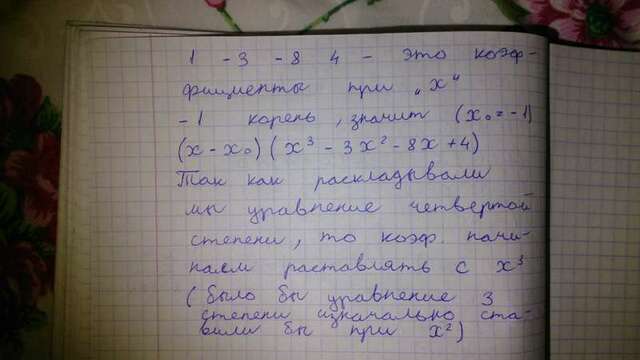 1 -3 -8 4 - это коэф-
фициенты при „x"
-1 корень, значит (x₀=-1)
(x-x₀)(x³-3x²-8x+4)
Так как раскладывали
мы уравнение четвертой
степени, то коэф. начи-
наем раставлять с x³
(было бы уравнение 3
степени изначально ста-
вили бы при x²)